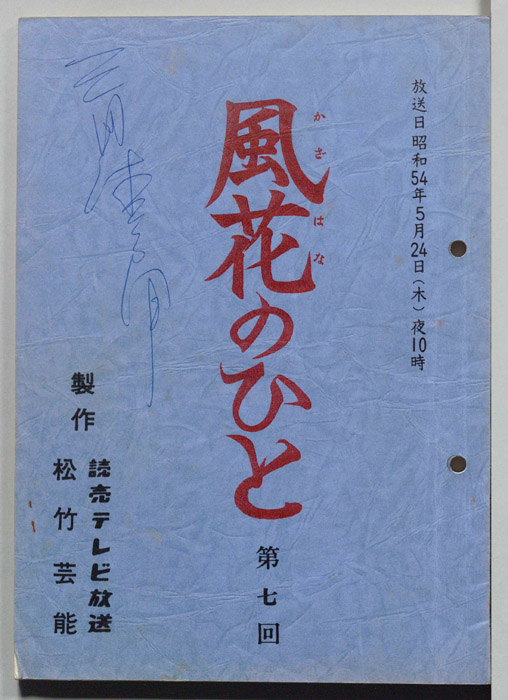 放送日昭和54年5月24日(木)夜10時
かざはな
風花のひと
第七回
製作
読売テレビ放送
松竹芸能